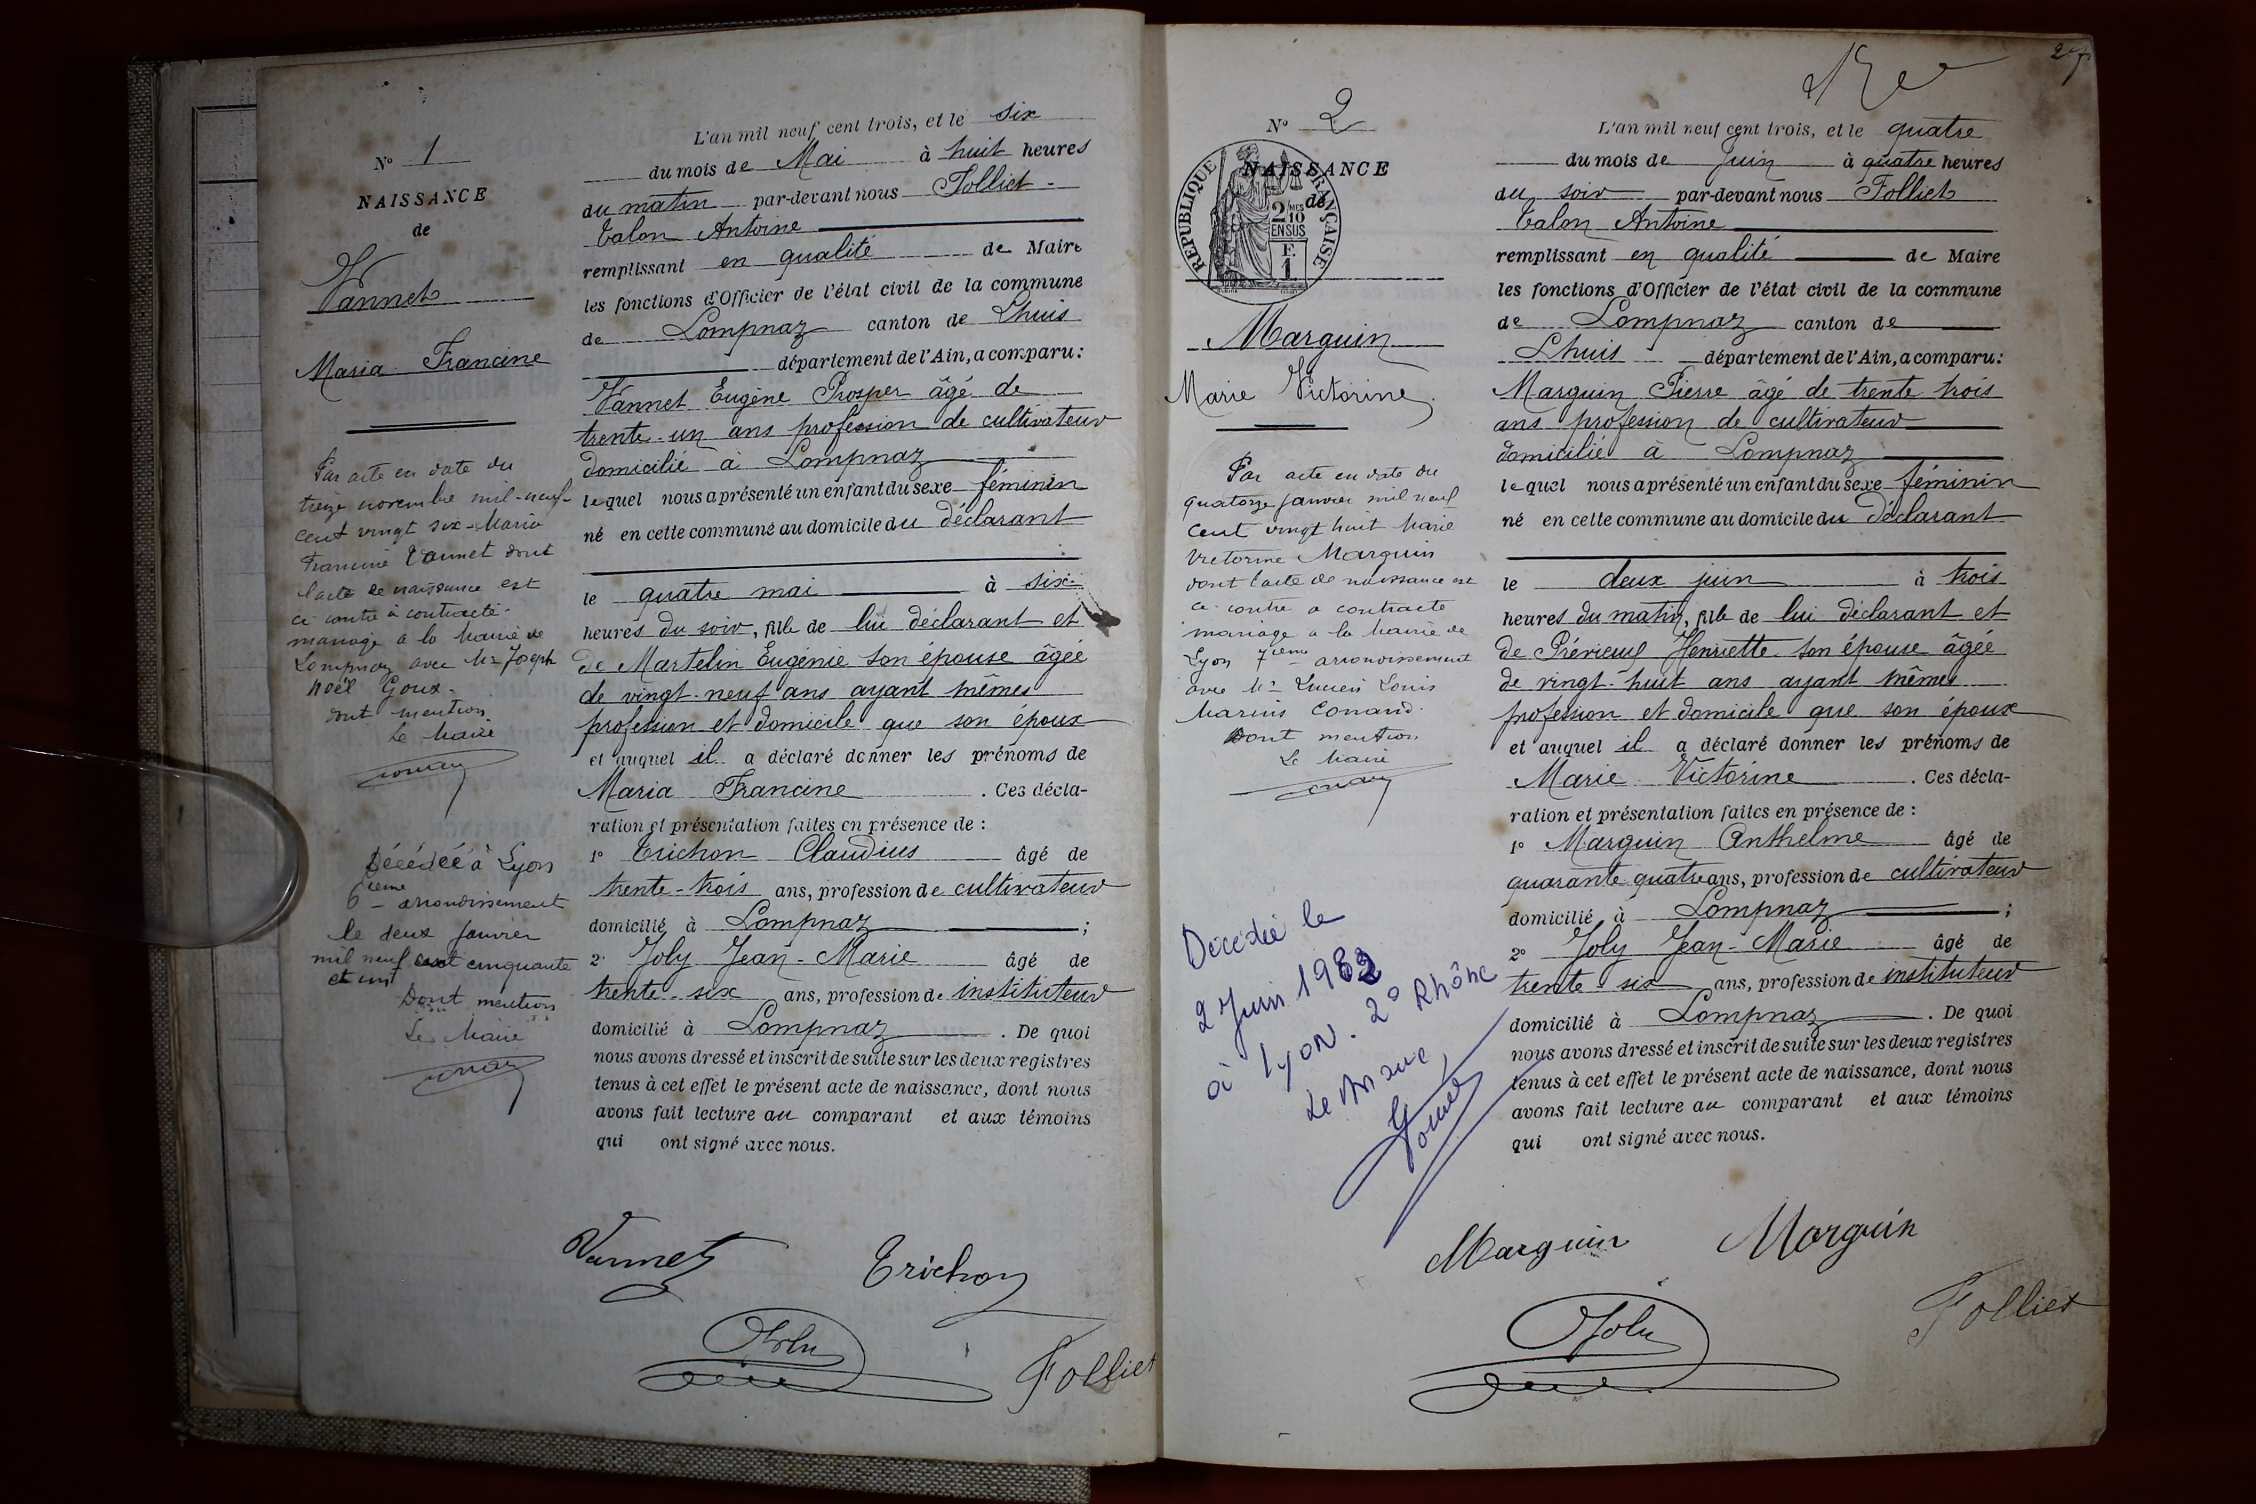 N° 1
NAISSANCE
de
Vannet
Maria Francine
Par acte en date du
treize novembre mil-neuf-
cent vingt six - Maria
Francine Vannet dont
l'acte de naissance est
ci contre à contracté
mariage à la Mairie de
Lompnaz avec Mr Joseph
Noël Goux.
dont mention
Le Maire
Décédée à Lyon
6ième arrondissement
le deux janvier
mil neuf cent cinquante
et un
Dont mention
Le Maire
L'an mil neuf cent trois, et le six
du mois de Mai à huit heures
du matin par-devant nous Folliet
Talon Antoine
remplissant en qualité de Maire
les fonctions d'Officier de l'état civil de la commune
de Lompnaz canton de Lhuis
département de l'Ain, a comparu:
Vannet Eugène Prosper âgé de
trente-un ans profession de cultivateur
domicilié à Lompnaz
lequel nous a présenté un enfant du sexe féminin
né en cette commune au domicile du déclarant
le quatre mai à six
heures du soir, fille de lui déclarant et
de Martelin Eugénie son épouse âgée
de vingt-neuf ans ayant mêmes
profession et domicile que son époux
et auquel il a déclaré donner les prénoms de
Maria Francine. Ces décla-
ration et présentation faites en présence de :
1° Trichon Claudius âgé de
trente-trois ans, profession de cultivateur
domicilié à Lompnaz ;
2° Joly Jean-Marie âgé de
trente-six ans, profession de instituteur
domicilié à Lompnaz. De quoi
nous avons dressé et inscrit de suite sur les deux registres
tenus à cet effet le présent acte de naissance, dont nous
avons fait lecture au comparant et aux témoins
qui ont signé avec nous.
Vannet Trichon
Joly Folliet
27
N° 2
NAISSANCE
de
RÉPUBLIQUE FRANÇAISE
2 MES
10
EN SUS
F.
1
Marguin
Marie Victorine
Par acte en date du
quatorze janvier mil neuf
cent vingt huit Marie
Victorine Marguin
dont l'acte de naissance est
ci-contre a contracté
mariage a la Mairie de
Lyon 7ième arrondissement
avec Mr Lucien Louis
Marius Conand.
Dont mention
Le Maire
Décédée le
2 Juin 1982
à Lyon. 2° Rhône
Le Maire,
L'an mil neuf cent trois, et le quatre
du mois de Juin à quatre heures
du soir par-devant nous Folliet
Talon Antoine
remplissant en qualité de Maire
les fonctions d'Officier de l'état civil de la commune
de Lompnaz canton de
Lhuis département de l'Ain, a comparu:
Marguin Pierre âgé de trente trois
ans profession de cultivateur
domicilié à Lompnaz
lequel nous a présenté un enfant du sexe féminin
né en cette commune au domicile du déclarant
le deux juin à trois
heures du matin, fille de lui déclarant et
de Prévieux Henriette son épouse âgée
de vingt-huit ans ayant mêmes
profession et domicile que son époux
et auquel il a déclaré donner les prénoms de
Marie Victorine. Ces décla-
ration et présentation faites en présence de :
1° Marguin Anthelme âgé de
quarante quatre ans, profession de cultivateur
domicilié à Lompnaz ;
2° Joly Jean-Marie âgé de
trente six ans, profession de instituteur
domicilié à Lompnaz. De quoi
nous avons dressé et inscrit de suite sur les deux registres
tenus à cet effet le présent acte de naissance, dont nous
avons fait lecture au comparant et aux témoins
qui ont signé avec nous.
Marguin Marguin
Joly Folliet